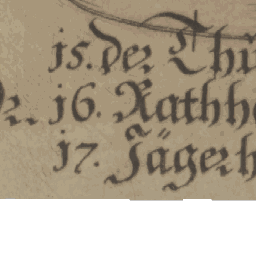 15. der Thü
r. 16. Rathh
17. Jägerh